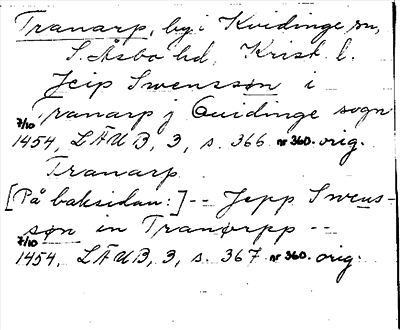 Tranarp, by i Kvidinge sn,
S. Åsbo hd, Krist. l.
Jeip Swenssøn i
Tranarp j Quidinge sogn
7/10 1454, LÄUB, 3, s. 366 nr 360. orig.
Tranarp
[På baksidan:] -- Jepp Swens-
søn in Tranørpp --
7/10 1454, LÄUB, 3, s. 367 nr 360. orig.